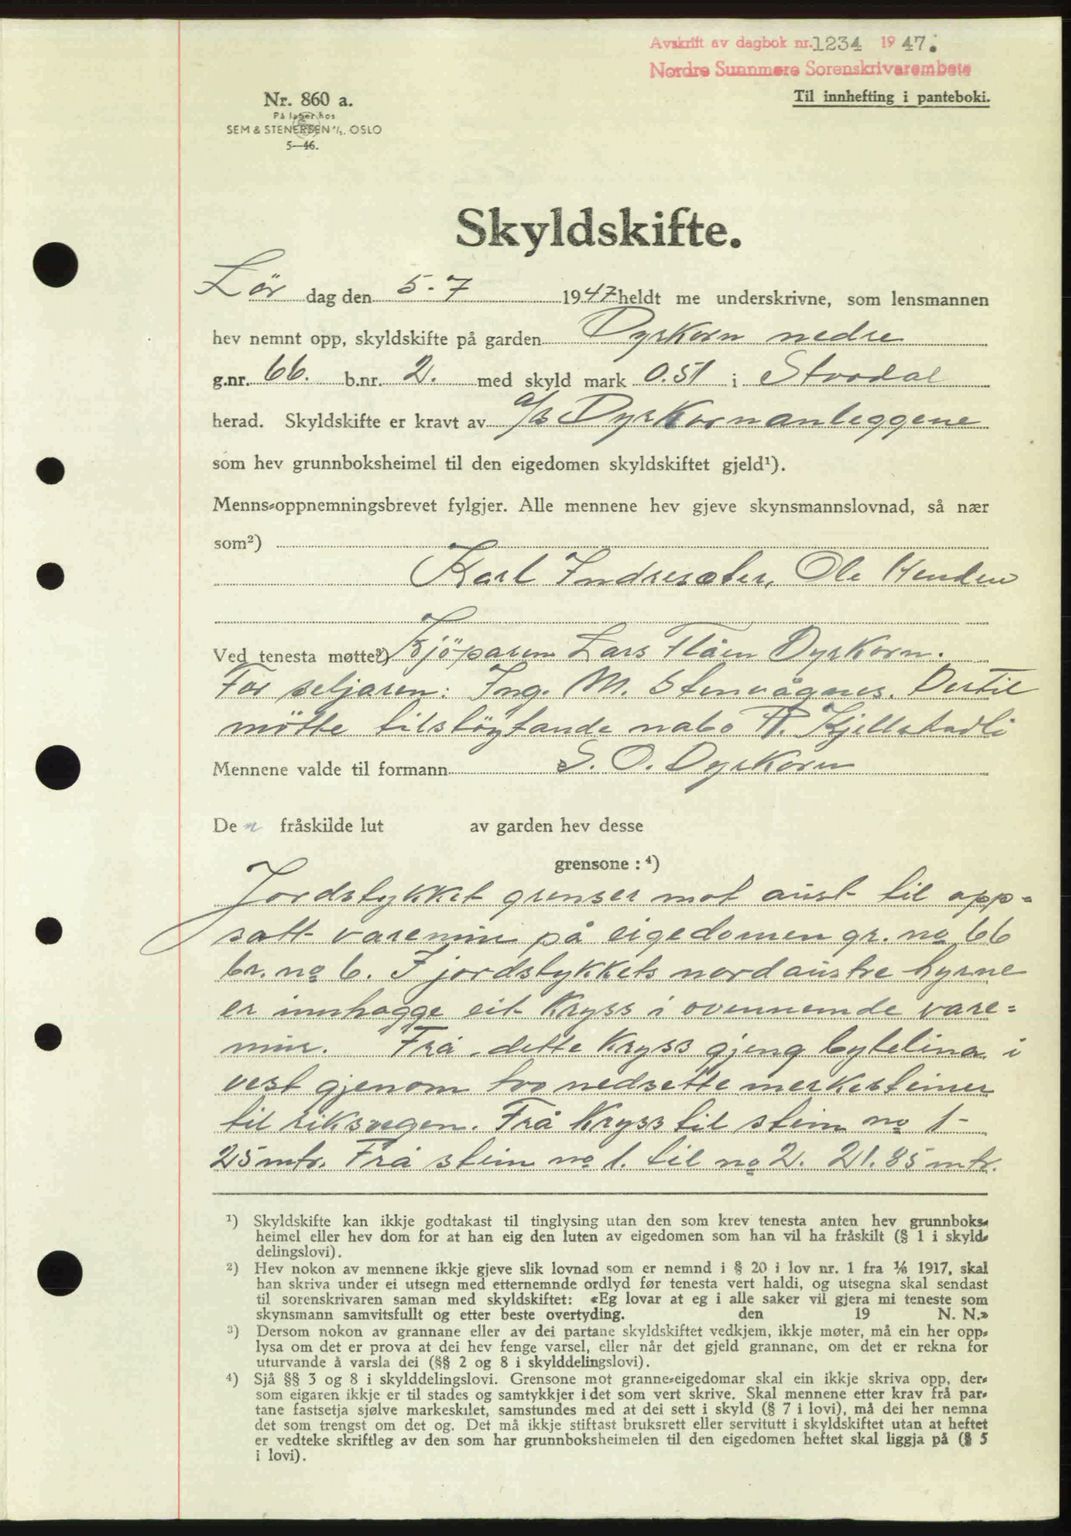 Avskrift av dagbok nr. 1234 1947.
Nordre Sunnmøre Sorenskrivarembete
Til innhefting i panteboki.
Nr. 860 a.
På lager hos
SEM & STENERSEN A/S. OSLO
5—46.
Skyldskifte.
Lør dag den 5-7 1947 heldt me underskrivne, som lensmannen
hev nemnt opp, skyldskifte på garden Dyrkorn nedre
g.nr. 66. b.nr. 2. med skyld mark 0.51 i Stordal
herad. Skyldskifte er kravt av a/s Dyrkornanleggene
som hev grunnboksheimel til den eigedomen skyldskiftet gjeld¹).
Menns-oppnemningsbrevet fylgjer. Alle mennene hev gjeve skynsmannslovnad, så nær
som²)
Karl Indresæter, Ole Henden
Ved tenesta møtte³) Kjöparen Lars Flåen Dyrkorn.
For seljaren: Ing. M. Stenvågnes. Dertil
mötte tilstöytande nabo P. Kjellstadli
Mennene valde til formann S. O. Dyrkorn
De n fråskilde lut av garden hev desse
grensone : ⁴)
Jordstykket grenser mot aust til opp-
satt varemur på eigedomen gr. no 66
br. no 6. I jordstykkets nordaustre hyrne
er innhogge eit kryss i ovennemde vare-
mur. Frå dette kryss gjeng bytelina i
vest gjenom tvo nedsette merkesteiner
til riksvegen. Frå kryss til stein no 1-
25 mtr. Frå stein no 1. til no 2. 21.85 mtr.
¹) Skyldskifte kan ikkje godtakast til tinglysing utan den som krev tenesta anten hev grunnboks-
heimel eller hev dom for at han eig den luten av eigedomen som han vil ha fråskilt (§ 1 i skyld-
delingslovi).
²) Hev nokon av mennene ikkje gjeve slik lovnad som er nemnd i § 20 i lov nr. 1 fra 1/6 1917, skal
han skriva under ei utsegn med etternemnde ordlyd før tenesta vert haldi, og utsegna skal sendast
til sorenskrivaren saman med skyldskiftet: «Eg lovar at eg i alle saker vil gjera mi teneste som
skynsmann samvitsfullt og etter beste overtyding. den 19 N. N.»
³) Dersom nokon av grannane eller av dei partane skyldskiftet vedkjem, ikkje møter, må ein her opp-
lysa om det er prova at dei hev fenge varsel, eller når det gjeld grannane, om det er rekna for
uturvande å varsla dei (§§ 2 og 8 i skylddelingslovi).
⁴) Sjå §§ 3 og 8 i skylddelingslovi. Grensone mot granne-eigedomar skal ein ikkje skriva opp, der-
som eigaren ikkje er til stades og samtykkjer i det som vert skrive. Skal mennene etter krav frå par-
tane fastsetja sjølve markeskilet, samstundes med at dei sett i skyld (§ 7 i lovi), må dei her nemna
det som trengst om det og. Det må ikkje stiftast bruksrett eller servitutt i skyldskiftet utan at heftet
er vedteke skriftleg av den som har grunnboksheimelen til den eigedomen heftet skal liggja på (§ 5
i lovi).